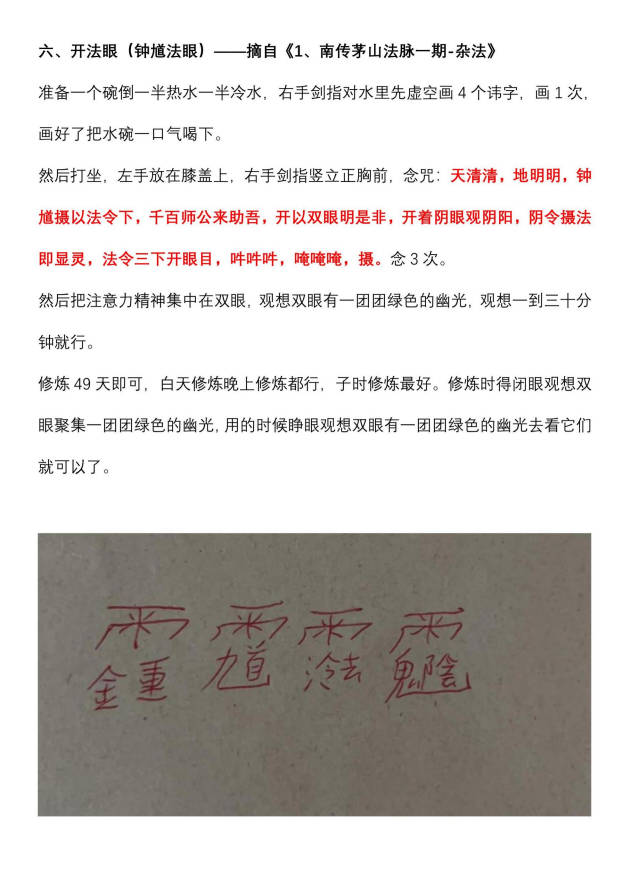 六、开法眼（钟馗法眼）——摘自《1、南传茅山法脉一期-杂法》
准备一个碗倒一半热水一半冷水，右手剑指对水里先虚空画 4 个讳字，画 1 次，
画好了把水碗一口气喝下。
然后打坐，左手放在膝盖上，右手剑指竖立正胸前，念咒：天清清，地明明，钟
馗摄以法令下，千百师公来助吾，开以双眼明是非，开着阴眼观阴阳，阴令摄法
即显灵，法令三下开眼目，吽吽吽，唵唵唵，摄。念 3 次。
然后把注意力精神集中在双眼，观想双眼有一团团绿色的幽光，观想一到三十分
钟就行。
修炼 49 天即可，白天修炼晚上修炼都行，子时修炼最好。修炼时得闭眼观想双
眼聚集一团团绿色的幽光，用的时候睁眼观想双眼有一团团绿色的幽光去看它们
就可以了。